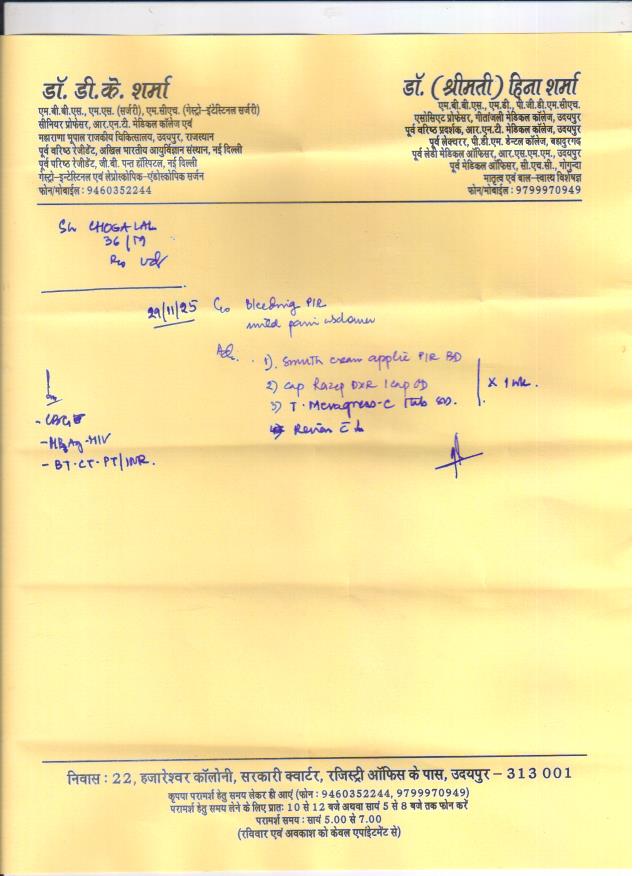 डॉ. डी.के. शर्मा
एम.बी.बी.एस., एम.एस. (सर्जरी), एम.सीएच. (गेस्ट्रो-इंटेस्टिनल सर्जरी)
सीनियर प्रोफेसर, आर.एन.टी. मेडिकल कॉलेज एवं
महाराणा भूपाल राजकीय चिकित्सालय, उदयपुर, राजस्थान
पूर्व वरिष्ठ रेजीडेंट, अखिल भारतीय आयुर्विज्ञान संस्थान, नई दिल्ली
पूर्व वरिष्ठ रेजीडेंट, जी.बी. पन्त हॉस्पिटल, नई दिल्ली
गेस्ट्रो-इन्टेस्टिनल एवं लेप्रोस्कोपिक-एंडोस्कोपिक सर्जन
फोन/मोबाईल : 9460352244
डॉ. (श्रीमती) हिना शर्मा
एम.बी.बी.एस., एम.डी., पी.जी.डी.एम.सीएच.
एसोसिएट प्रोफेसर, गीतांजली मेडिकल कॉलेज, उदयपुर
पूर्व वरिष्ठ प्रदर्शक, आर.एन.टी. मेडिकल कॉलेज, उदयपुर
पूर्व लेक्चरर, पी.डी.एम. डेन्टल कॉलेज, बहादुरगढ़
पूर्व लेडी मेडिकल ऑफिसर, आर.एस.एम.एम., उदयपुर
पूर्व मेडिकल ऑफिसर, सी.एच.सी., गोगुन्दा
मातृत्व एवं बाल-स्वास्थ्य विशेषज्ञ
फोन/मोबाईल : 9799970949
CHOGALAL
36/M
29/11/25 C/o Bleeding P/R
mild pain
Adv. 1). Smuth cream P/R BD
2) Cap Razep DXR 1 cap OD
3) T. 1 tab
x 1 wk.
4) Review
- CBC
- HBsAg - HIV
- BT. CT. PT/INR.
निवास : 22, हजारेश्वर कॉलोनी, सरकारी क्वार्टर, रजिस्ट्री ऑफिस के पास, उदयपुर – 313 001
कृपया परामर्श हेतु समय लेकर ही आएं (फोन : 9460352244, 9799970949)
परामर्श हेतु समय लेने के लिए प्रातः 10 से 12 बजे अथवा सायं 5 से 8 बजे तक फोन करें
परामर्श समय : सायं 5.00 से 7.00
(रविवार एवं अवकाश को केवल एपांइटमेंट से)